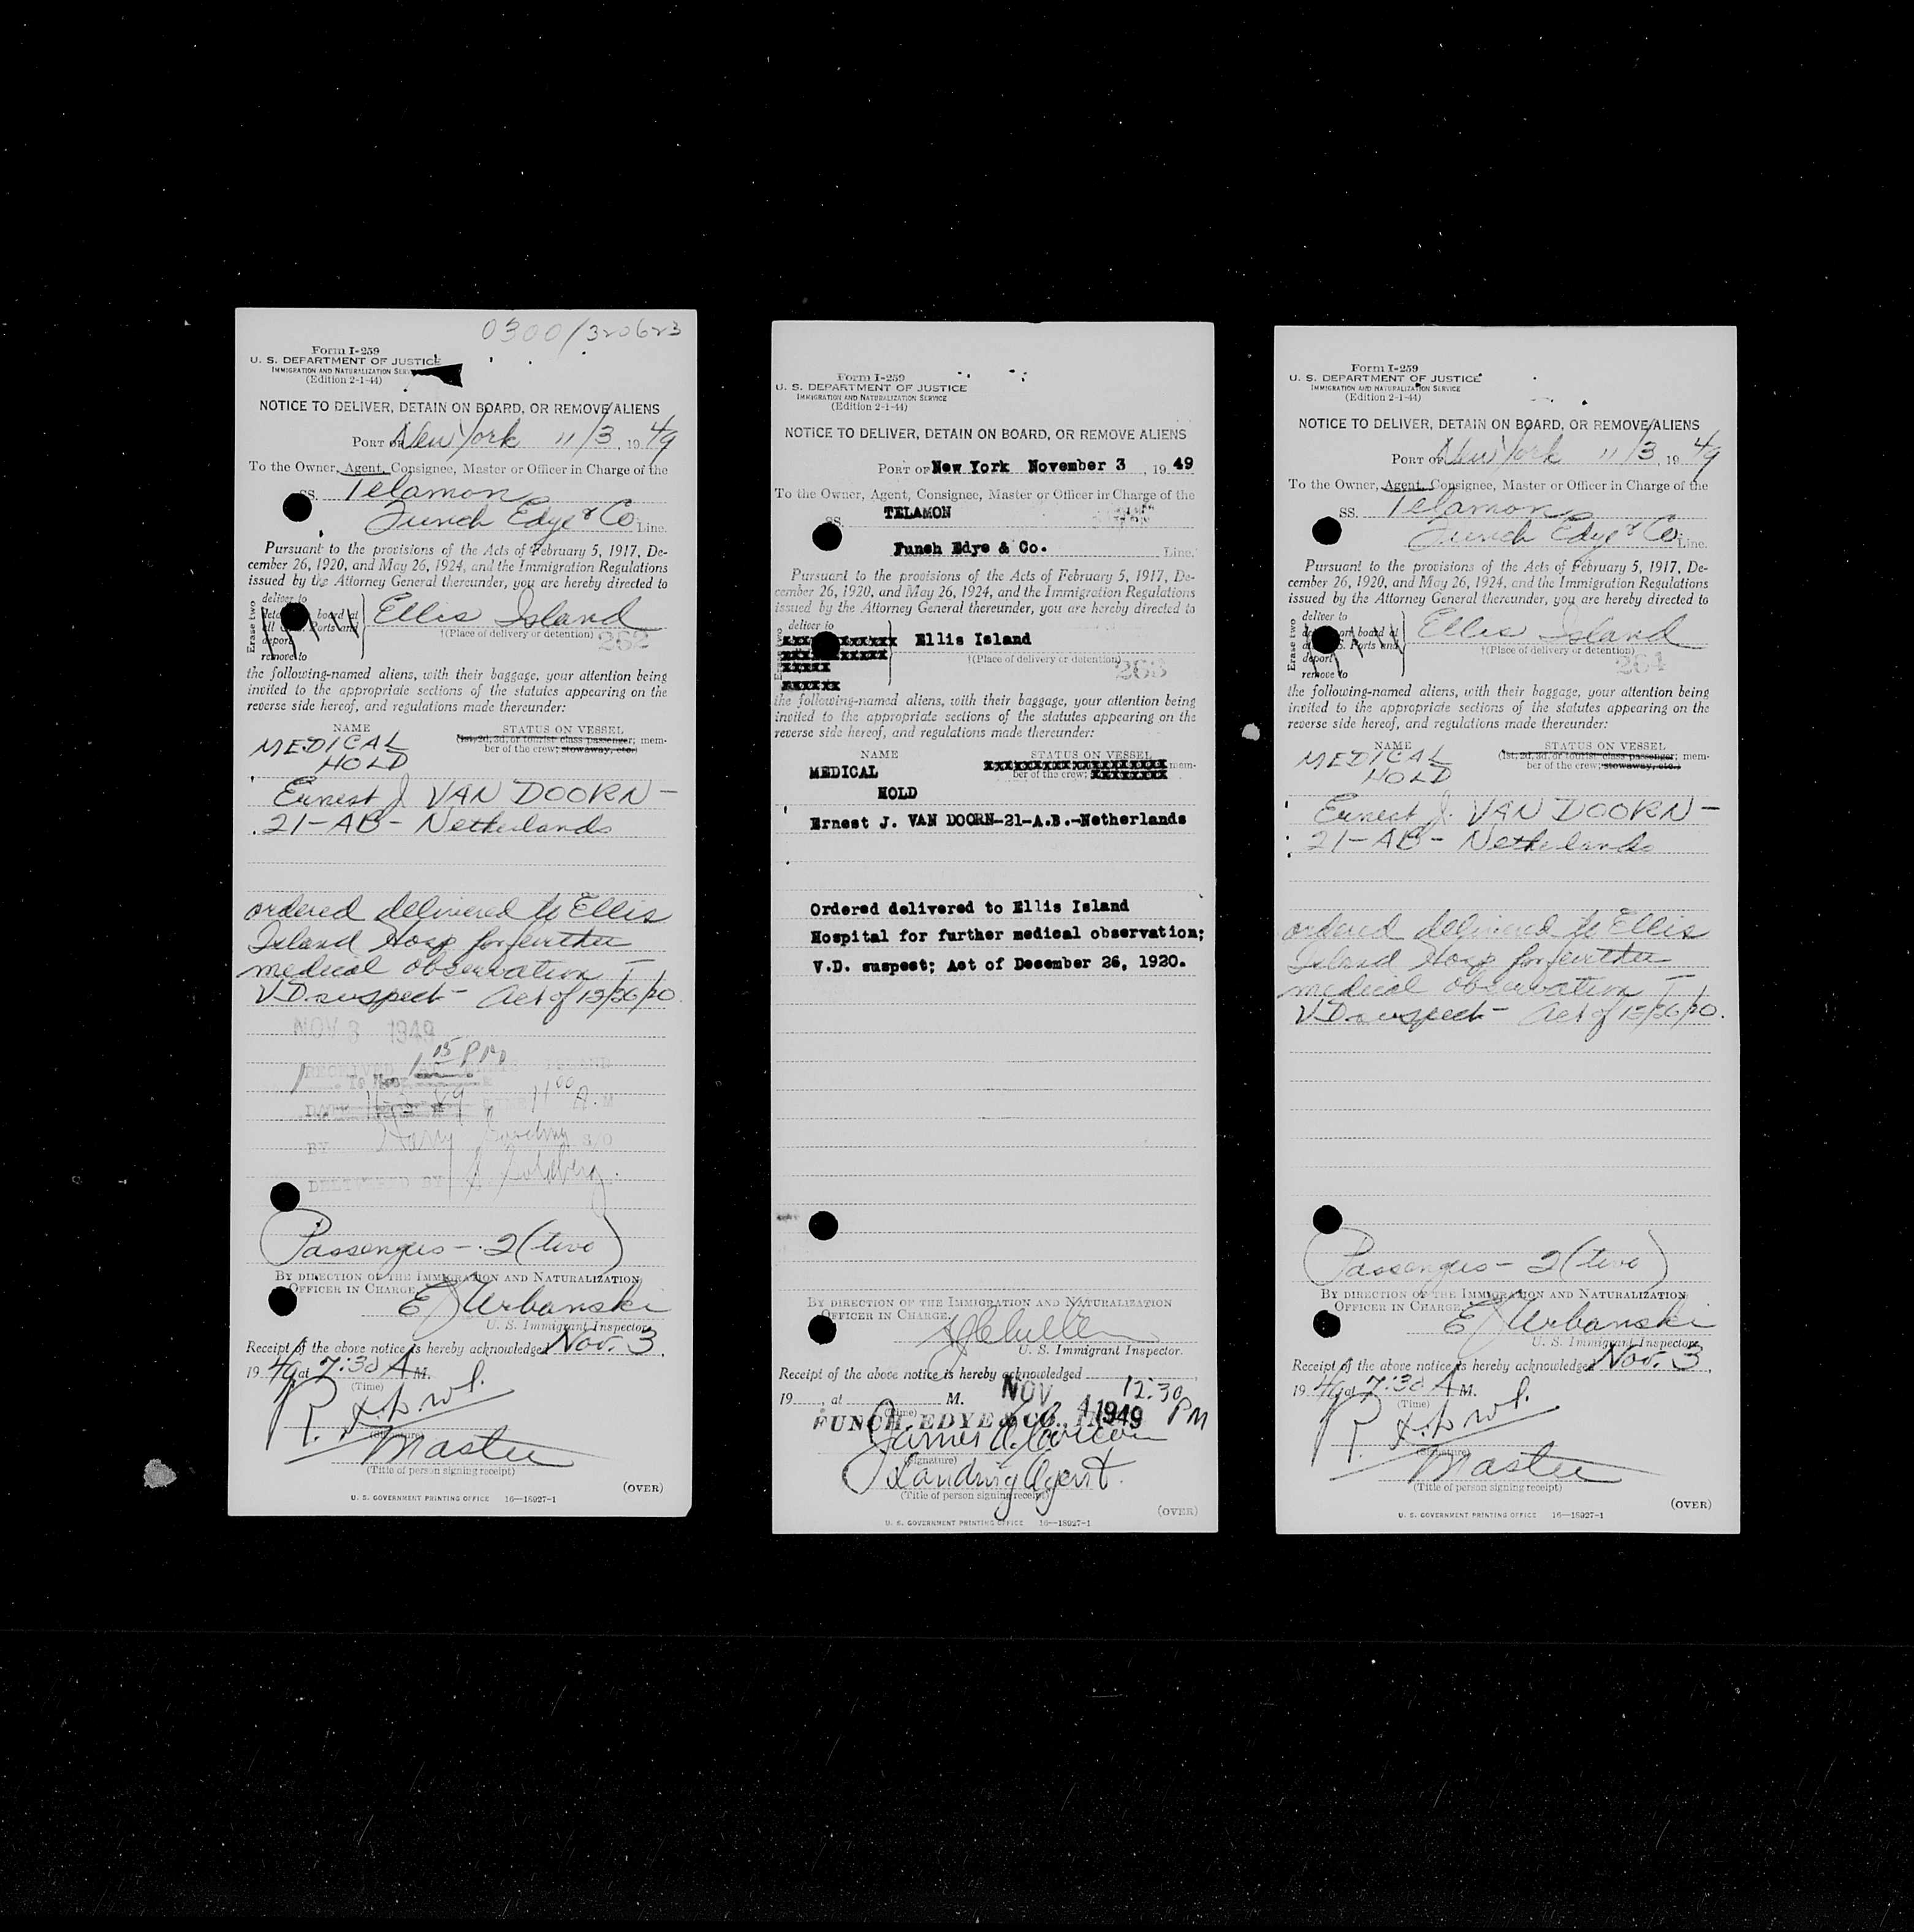 0300/320623
Form I-259
U. S. DEPARTMENT OF JUSTICE
IMMIGRATION AND NATURALIZATION SERV
(Edition 2-1-44)
NOTICE TO DELIVER, DETAIN ON BOARD, OR REMOVE ALIENS
PORT OF New York 11/3, 1949
To the Owner, Agent, Consignee, Master or Officer in Charge of the
SS. Telamon
Funch Edye & Co. Line.
Pursuant to the provisions of the Acts of February 5, 1917, De-
cember 26, 1920, and May 26, 1924, and the Immigration Regulations
issued by the Attorney General thereunder, you are hereby directed to
Erase two
deliver to
board at
Ports and
deport
remove to
Ellis Island
†(Place of delivery or detention)
262
the following-named aliens, with their baggage, your attention being
invited to the appropriate sections of the statutes appearing on the
reverse side hereof, and regulations made thereunder:
NAME STATUS ON VESSEL
(1st, 2d, 3d, or tourist class passenger; mem-
ber of the crew; stowaway, etc.)
MEDICAL
HOLD
Ernest J. VAN DOORN-
21-AB- Netherlands
ordered delivered to Ellis
Island Hosp for further
medical observation -
V.D. suspect - Act of 12/26/20.
NOV 3 1949
RECEIVED 1 15 PM
DATE 11 00 A.M
BY Harry S/O
DELIVERED BY S. Goldberg
(Passengers - 2 (two)
BY DIRECTION OF THE IMMIGRATION AND NATURALIZATION
OFFICER IN CHARGE.
E J Urbanski
U. S. Immigrant Inspector.
Receipt of the above notice is hereby acknowledged Nov. 3,
1949, at 7:30 A M.
(Time)
(Signature)
Master
(Title of person signing receipt)
(OVER)
U. S. GOVERNMENT PRINTING OFFICE 16—18927-1
Form I-259
U. S. DEPARTMENT OF JUSTICE
IMMIGRATION AND NATURALIZATION SERVICE
(Edition 2-1-44)
NOTICE TO DELIVER, DETAIN ON BOARD, OR REMOVE ALIENS
PORT OF New York November 3, 1949
To the Owner, Agent, Consignee, Master or Officer in Charge of the
SS. TELAMON
Funch Edye & Co. Line.
Pursuant to the provisions of the Acts of February 5, 1917, De-
cember 26, 1920, and May 26, 1924, and the Immigration Regulations
issued by the Attorney General thereunder, you are hereby directed to
deliver to
Ellis Island
†(Place of delivery or detention)
263
the following-named aliens, with their baggage, your attention being
invited to the appropriate sections of the statutes appearing on the
reverse side hereof, and regulations made thereunder:
NAME STATUS ON VESSEL
mem-
ber of the crew;
MEDICAL
HOLD
Ernest J. VAN DOORN-21-A.B.-Netherlands
Ordered delivered to Ellis Island
Hospital for further medical observation;
V.D. suspect; Act of December 26, 1920.
BY DIRECTION OF THE IMMIGRATION AND NATURALIZATION
OFFICER IN CHARGE.
U. S. Immigrant Inspector.
Receipt of the above notice is hereby acknowledged
19 , at M.
NOV 4 1949 12:30 PM
(Time)
FUNCH, EDYE & CO., INC.
James A.
(Signature)
Landing Agent.
(Title of person signing receipt)
(OVER)
U. S. GOVERNMENT PRINTING OFFICE 16—18927-1
Form I-259
U. S. DEPARTMENT OF JUSTICE
IMMIGRATION AND NATURALIZATION SERVICE
(Edition 2-1-44)
NOTICE TO DELIVER, DETAIN ON BOARD, OR REMOVE ALIENS
PORT OF New York 11/3, 1949
To the Owner, Agent, Consignee, Master or Officer in Charge of the
SS. Telamon
Funch Edye & Co. Line.
Pursuant to the provisions of the Acts of February 5, 1917, De-
cember 26, 1920, and May 26, 1924, and the Immigration Regulations
issued by the Attorney General thereunder, you are hereby directed to
Erase two
deliver to
on board at
Ports and
deport
remove to
Ellis Island
†(Place of delivery or detention)
264
the following-named aliens, with their baggage, your attention being
invited to the appropriate sections of the statutes appearing on the
reverse side hereof, and regulations made thereunder:
NAME STATUS ON VESSEL
(1st, 2d, 3d, or tourist class passenger; mem-
ber of the crew; stowaway, etc.)
MEDICAL
HOLD
Ernest J. VAN DOORN-
21-AB- Netherlands
ordered delivered to Ellis
Island Hosp for further
medical observation -
V.D. suspect - Act of 12/26/20.
(Passengers - 2 (two)
BY DIRECTION OF THE IMMIGRATION AND NATURALIZATION
OFFICER IN CHARGE.
E J Urbanski
U. S. Immigrant Inspector.
Receipt of the above notice is hereby acknowledged Nov. 3,
1949, at 7:30 A M.
(Time)
(Signature)
Master
(Title of person signing receipt)
(OVER)
U. S. GOVERNMENT PRINTING OFFICE 16—18927-1